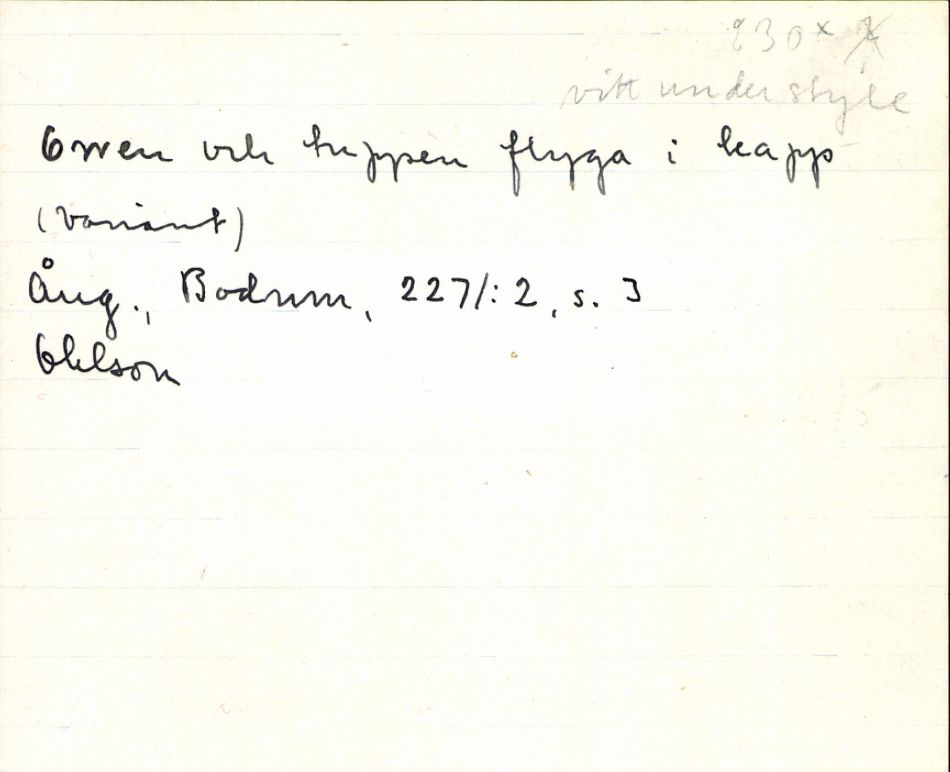 230 x
vitt under style
Orren och tuppen flyga i kapp
(Variant)
Ång., Bodum, 227/:2, s. 3
Ohlson